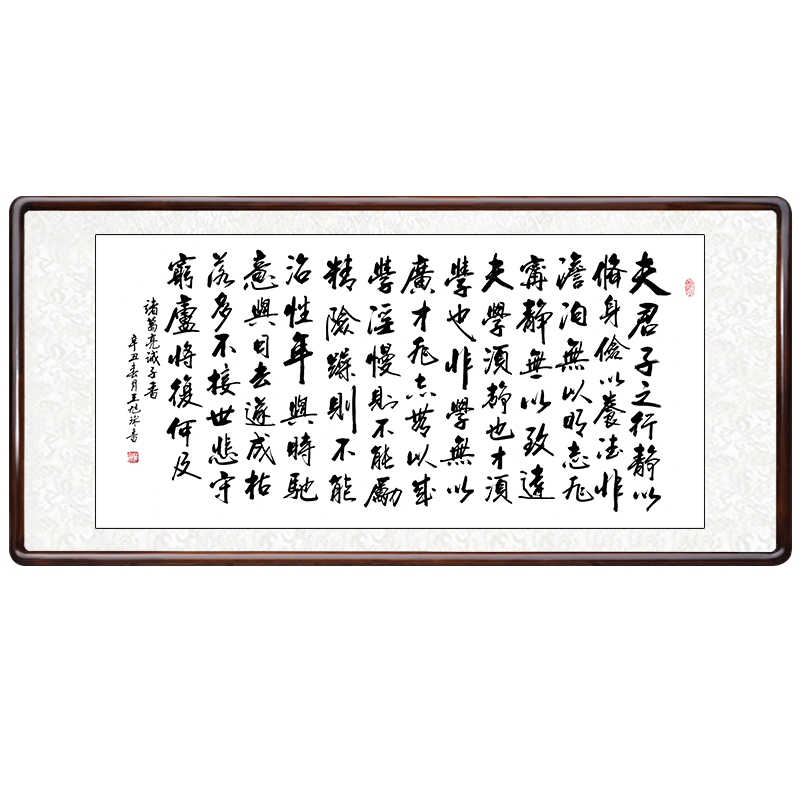 夫君子之行靜以
脩身儉以養德非
澹泊無以明志非
甯靜無以致遠
夫學須靜也才須
學也非學無以
廣才非志無以成
學淫慢則不能勵
精險躁則不能
治性年與時馳
意與日去遂成枯
落多不接世悲守
窮廬將復何及
諸葛亮誡子書
辛丑春月王旭書